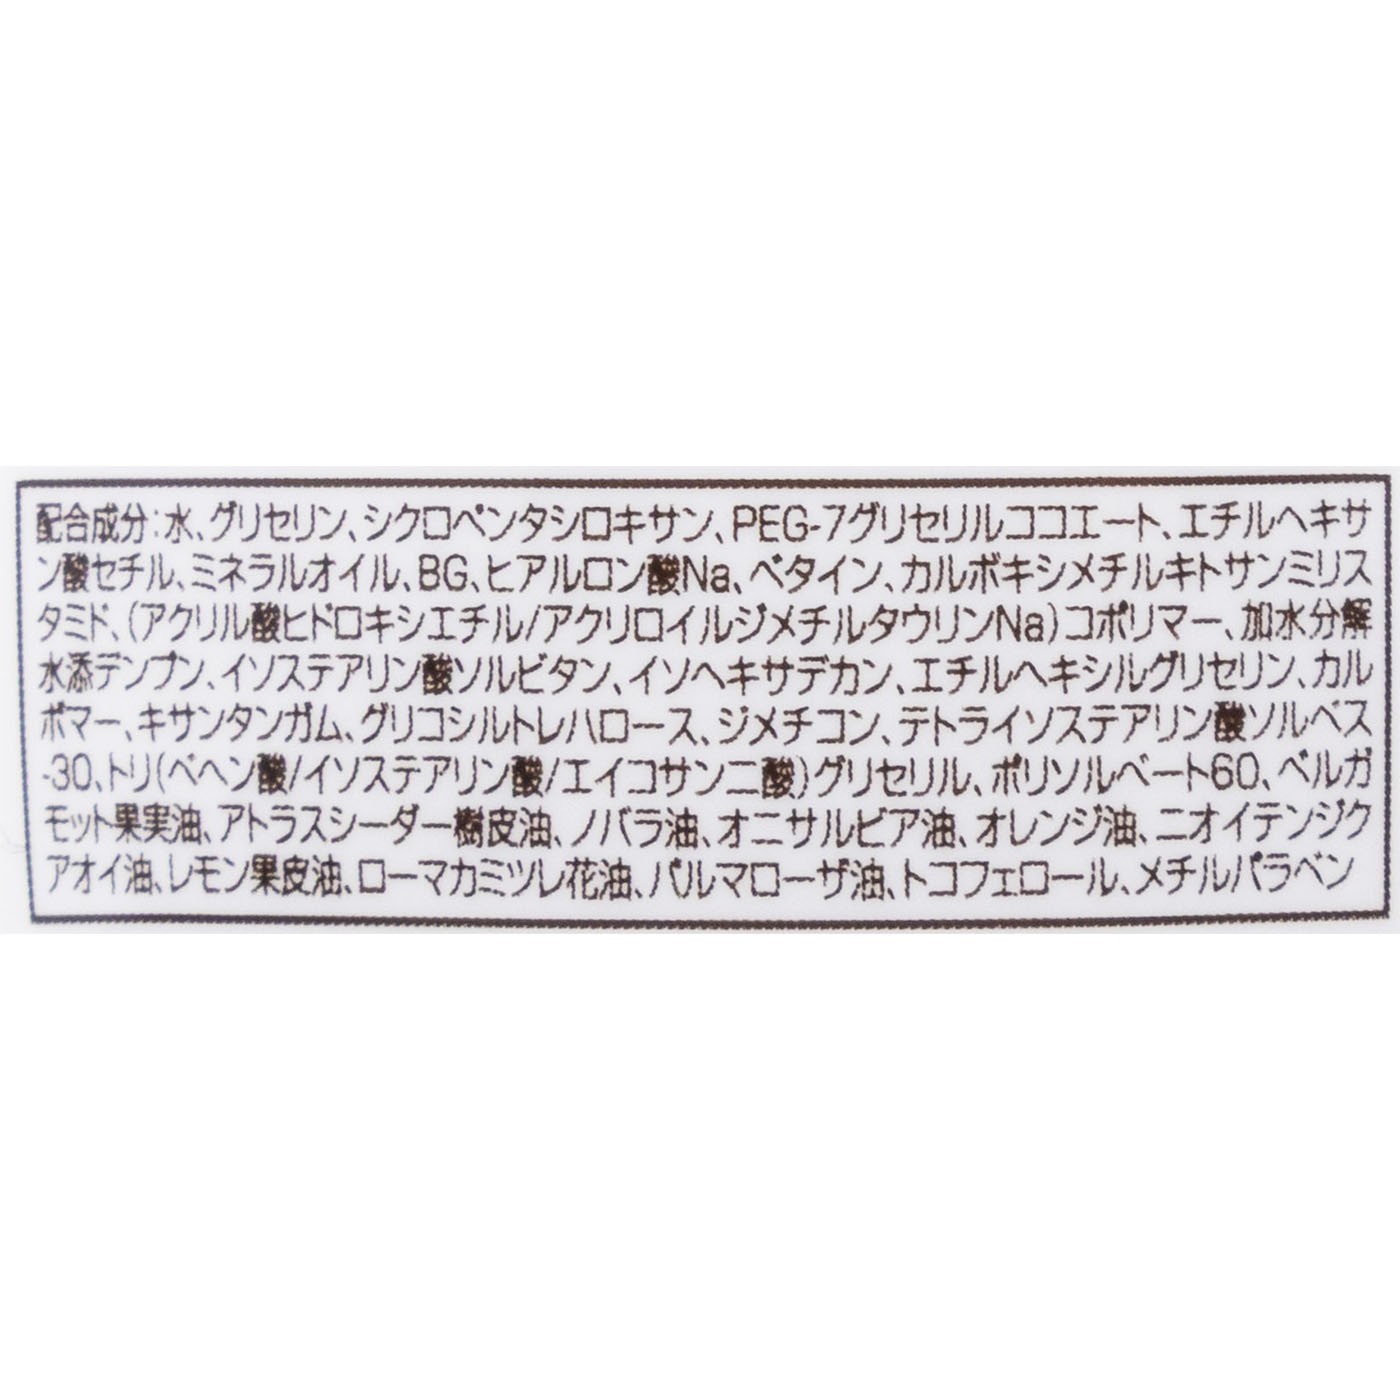 配合成分:水、グリセリン、シクロペンタシロキサン、PEG-7グリセリルココエート、エチルヘキサ
ン酸セチル、ミネラルオイル、BG、ヒアルロン酸Na、ベタイン、カルボキシメチルキトサンミリス
タミド、(アクリル酸ヒドロキシエチル/アクリロイルジメチルタウリンNa)コポリマー、加水分解
水添デンプン、イソステアリン酸ソルビタン、イソヘキサデカン、エチルヘキシルグリセリン、カル
ボマー、キサンタンガム、グリコシルトレハロース、ジメチコン、テトライソステアリン酸ソルベス
-30、トリ(ベヘン酸/イソステアリン酸/エイコサン二酸)グリセリル、ポリソルベート60、ベルガ
モット果実油、アトラスシーダー樹皮油、ノバラ油、オニサルビア油、オレンジ油、ニオイテンジク
アオイ油、レモン果皮油、ローマカミツレ花油、パルマローザ油、トコフェロール、メチルパラベン